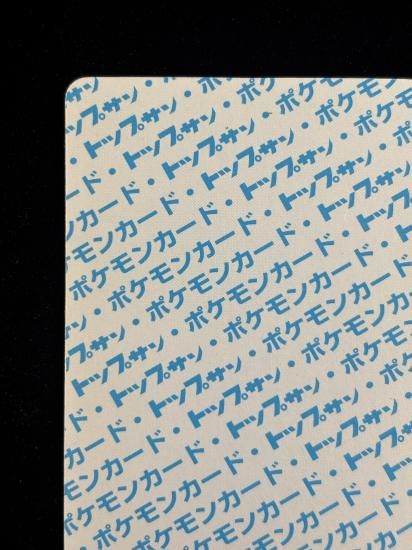 サン・
トップサン・ポケモ
ド・トップサン・ポケモン
カード・トップサン・ポケモ
ンカード・トップサン・ポケ
モンカード・トップサン・ポ
ポケモンカード・トップサン
・ポケモンカード・トップサ
ン・ポケモンカード・トップ
サン・ポケモンカード・
トップサン・ポケモンカード
・トップサン・ポケモンカー
ド・トップサン・ポケモン
カード・トップサン・ポケモ
ンカード・トップサン・ポ
ケモンカード・トップサン・
ポケモンカード・トップサ
・ポケモンカード・